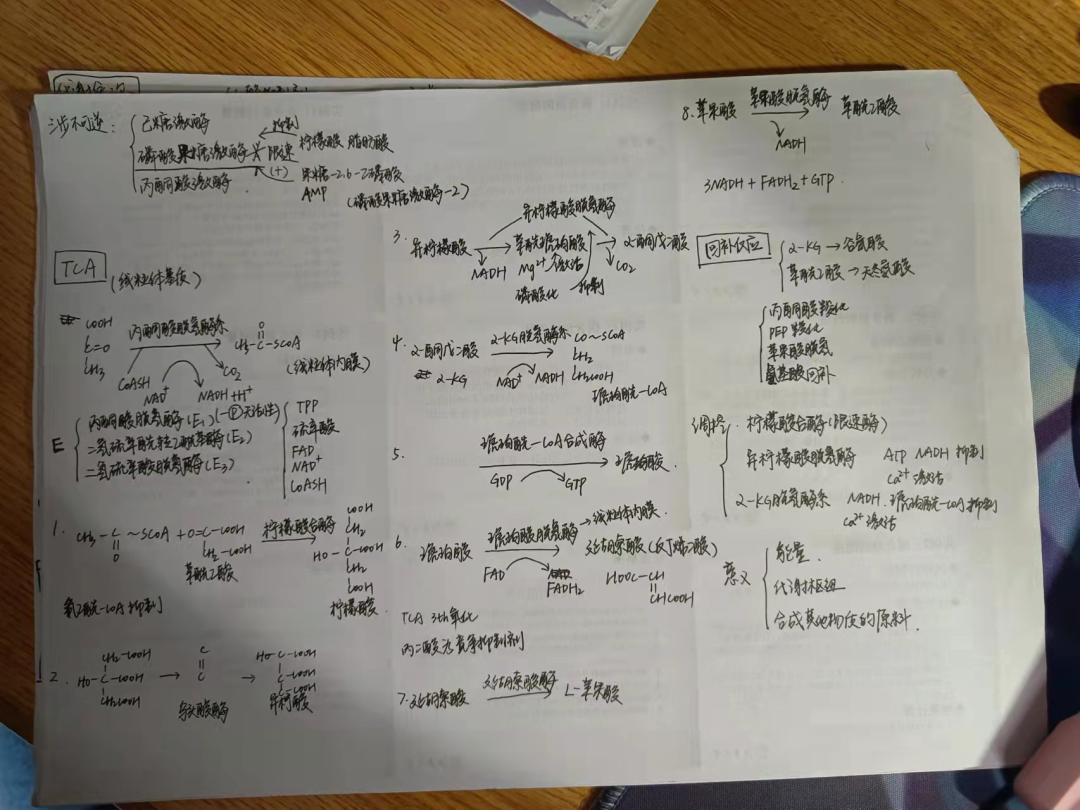 三步不可逆：
己糖激酶
磷酸果糖激酶 限速
丙酮酸激酶
抑制
柠檬酸 脂肪酸
(+)
果糖-2.6-二磷酸
AMP
(磷酸果糖激酶-2)
TCA
(线粒体基质)
COOH
C=O
CH3
丙酮酸脱氢酶系
CoASH
NAD+
NADH+H+
CO2
O
CH3-C-SCoA
(线粒体内膜)
E
丙酮酸脱氢酶(E1)(-Ⓟ无活性)
二氢硫辛酰转乙酰基酶(E2)
二氢硫辛酸脱氢酶(E3)
TPP
硫辛酸
FAD
NAD+
CoASH
1.
CH3-C~SCoA + O=C-COOH
O
CH2-COOH
草酰乙酸
柠檬酸合酶
COOH
CH2
HO-C-COOH
CH2
COOH
柠檬酸
氟乙酰-CoA抑制
2.
CH2-COOH
HO-C-COOH
CH2COOH
→
C
C
乌头酸酶
→
HO-C-COOH
C-COOH
C-COOH
异柠酸
3.
异柠檬酸脱氢酶
异柠檬酸 → 草酰琥珀酸 → α-酮戊二酸
NADH
Mg2+激活
CO2
磷酸化 抑制
4.
α-酮戊二酸
α-KG
α-KG脱氢酶系
NAD+ NADH
CO~SCoA
CH2
CH2COOH
琥珀酰-CoA
5.
琥珀酰-CoA合成酶
GDP GTP
琥珀酸.
6.
琥珀酸
琥珀酸脱氢酶→线粒体内膜.
FAD
FADH2
延胡索酸(反丁烯二酸)
HOOC-CH
CHCOOH
TCA 3th氧化
丙二酸为竞争抑制剂
7.延胡索酸 延胡索酸酶 L-苹果酸
8.苹果酸 苹果酸脱氢酶 草酰乙酸
NADH
3NADH+FADH2+GTP.
回补供应
α-KG → 谷氨酸
草酰乙酸 → 天冬氨酸
丙酮酸羧化
PEP羧化
苹果酸脱氢
氨基酸回补
调控：
柠檬酸合酶(限速酶)
异柠檬酸脱氢酶 ATP NADH抑制
Ca2+激活
α-KG脱氢酶系 NADH.琥珀酰-CoA抑制
Ca2+激活
意义
能量.
代谢枢纽
合成其他物质的原料.